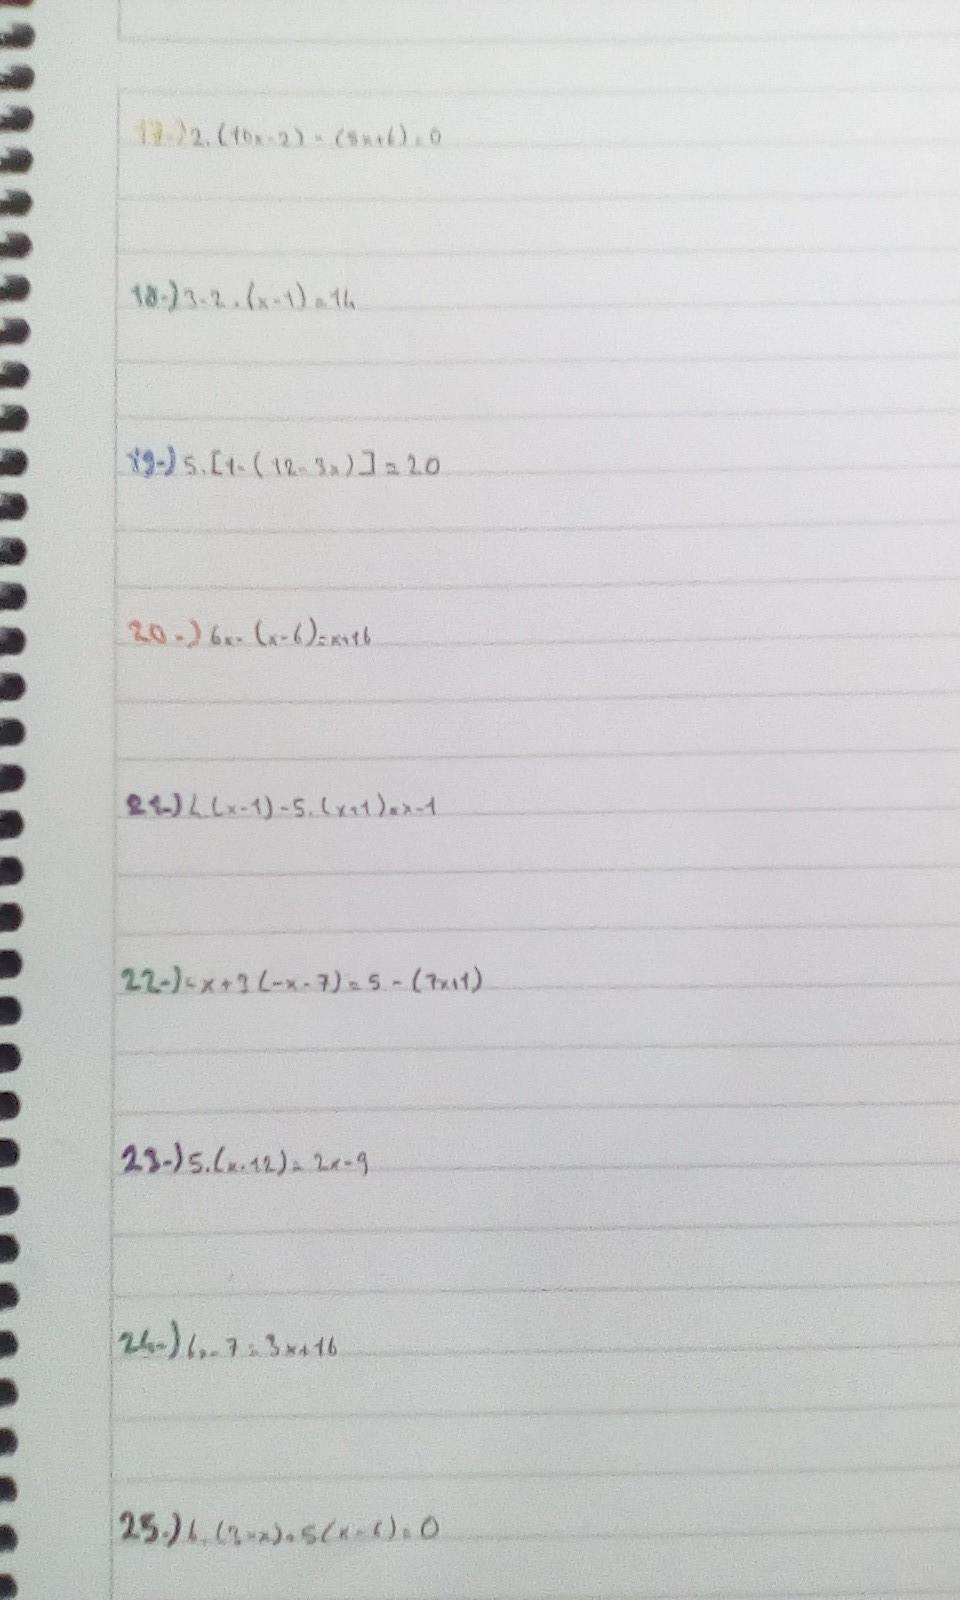 17-) 2.(10x-2) - (8x+6)=0
18-) 3-2.(x-1)=14
19-) 5.[1-(12-3x)]=20
20-) 6x-(x-6)=x+16
21-) 4.(x-1)-5.(x+1)=x-1
22-) -x+3(-x-7)=5-(7x+1)
23-) 5.(x-12)=2x-9
24-) 4x-7=3x+16
25-)